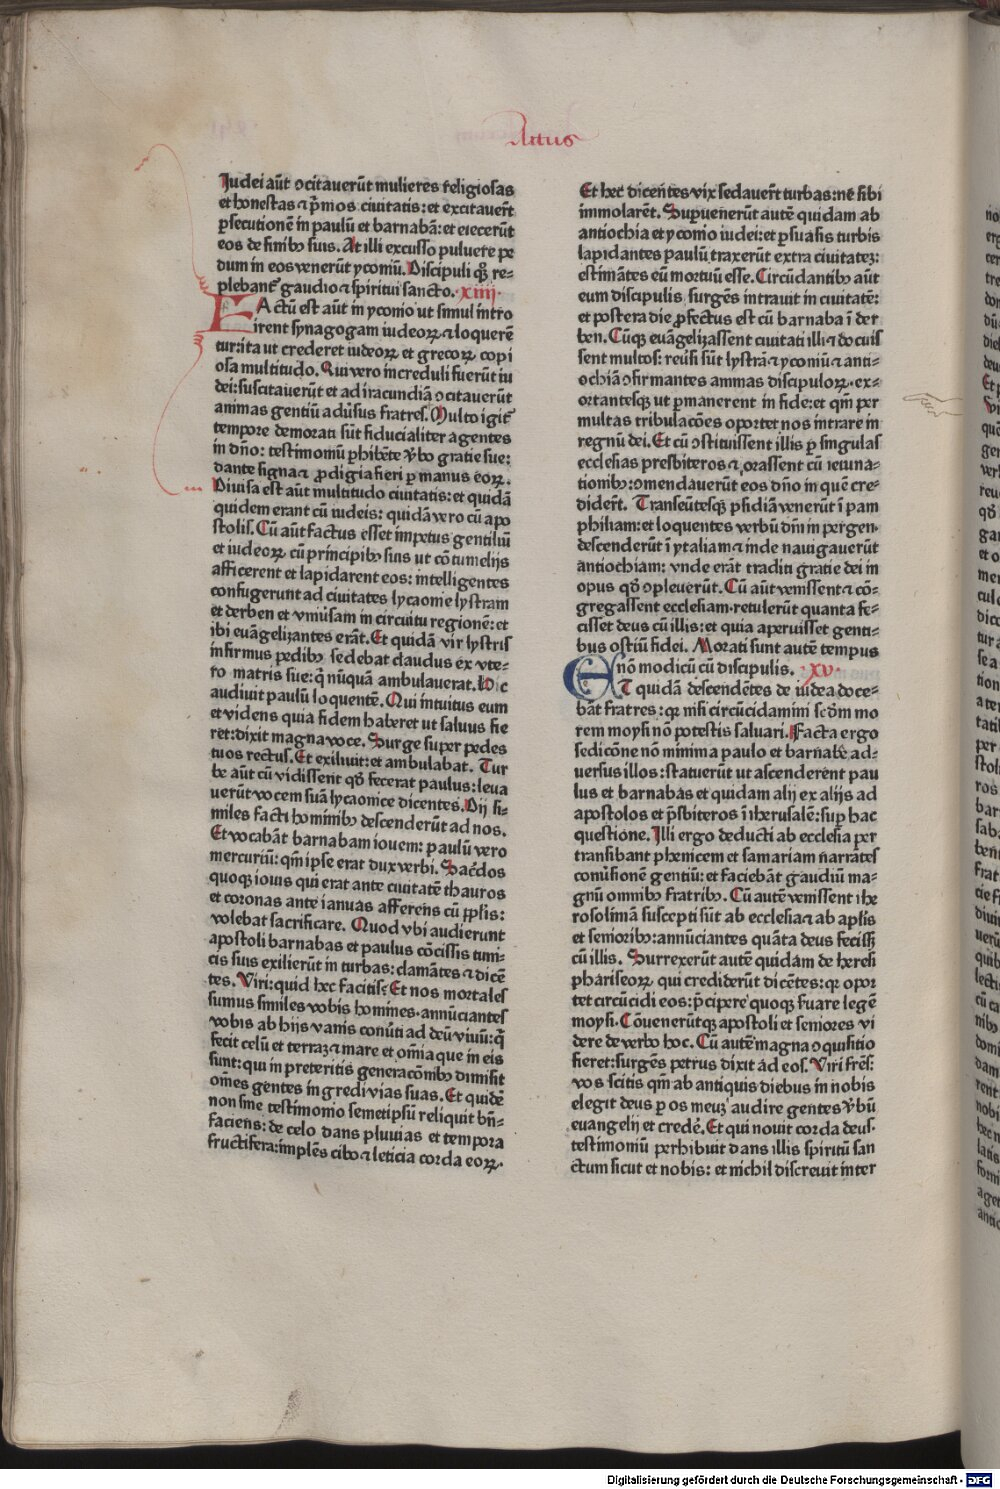 Actus
Iudei aūt ꝯcitauerūt mulieres religiosas
et honestas ⁊ p̄mos ciuitatis: et excitauer̄t
ꝑsecutionē in paulū et barnabā: et eiecerūt
eos de finibꝰ suis. At illi excusso puluere pe
dum in eos venerūt yconiū. Discipuli qꝫ re⸗
plebant᷑ gaudio ⁊ spiritui sancto. ·xiiij·
FActū est aūt in yconio ut simul intro
irent synagogam iudeoꝝ ⁊ loquerē
tur: ita ut crederet iudeoꝝ et grecoꝝ copi
osa multitudo. Qui vero increduli fuerūt iu
dei: suscitauerūt et ad iracundiā ꝯcitauerūt
animas gentiū aduͥsus fratres. Multo igit᷑
tempore demorati sūt fiducialiter agentes
in dn̄o: testimoniū ꝑhibēte v̄bo gratie sue:
dante signa ⁊ ꝓdigia fieri ꝑ manus eoꝝ.
Diuisa est aūt multitudo ciuitatis: et quidā
quidem erant cū iudeis: quidā vero cū apo
stolis. Cū aūt factus esset impetus gentiliū
et iudeoꝝ cū principibꝰ suis ut cōtumelijs
afficerent et lapidarent eos: intelligentes
confugerunt ad ciuitates lycaonie lystram
et derben et vniūsam in circuitu regionē: et
ibi euāgelizantes erāt. Et quidā vir lystris
infirmus pedibꝰ sedebat claudus ex vte⸗
ro matris sue: q̄ nūquā ambulauerat. Hic
audiuit paulū loquentē. Qui intuitus eum
et videns quia fidem haberet ut saluus fie
ret: dixit magna voce. Surge super pedes
tuos rectus. Et exiliuit: et ambulabat. Tur
be aūt cū vidissent qd̄ fecerat paulus: leua
uerūt vocem suā lycaonice dicentes. Dij si⸗
miles facti hominibꝰ descenderūt ad nos.
Et vocabāt barnabam iouem: paulū vero
mercuriū: qm̄ ipse erat dux verbi. Sac̄dos
quoqꝫ iouis qui erat ante ciuitatē thauros
et coronas ante ianuas afferens cū ppl̄is:
volebat sacrificare. Quod vbi audierunt
apostoli barnabas et paulus cōcissis tuni⸗
cis suis exilierūt in turbas: clamātes ⁊ dicē
tes. Viri: quid hec facitis? Et nos mortales
sumus similes vobis homines· annūciantes
vobis ab hijs vanis conūti ad deū viuū: q̄
fecit celū et terraꝫ ⁊ mare et om̄ia que in eis
sunt: qui in preteritis generacōnibꝰ dimisit
om̄es gentes ingredi vias suas. Et quidē
non sine testimonio semetipsū reliquit bn̄⸗
faciens: de celo dans pluuias et tempora
fructifera: implēs cibo ⁊ leticia corda eoꝝ.
Et hec dicentes vix sedauer̄t turbas: ne sibi
immolarēt. Supuenerūt autē quidam ab
antiochia et yconio iudei: et ꝑsuasis turbis
lapidantes paulū traxerūt extra ciuitateꝫ:
estimātes eū mortuū esse. Circūdantibꝰ aūt
eum discipulis surgēs intrauit in ciuitatē:
et postera die ꝓfectus est cū barnaba ī der
ben. Cūqꝫ euāgelizassent ciuitati illi ⁊ docuis
sent multos: reūsi sūt lystrā ⁊ yconiū ⁊ anti⸗
ochiā ꝯfirmantes animas discipuloꝝ· ex⸗
ortantesqꝫ ut ꝑmanerent in fide: et qm̄ per
multas tribulacōes oportet nos intrare in
regnū dei. Et cū ꝯstituissent illis ꝑ singulas
ecclesias presbiteros ⁊ orassent cū ieiunā⸗
tionibꝰ: ꝯmendauerūt eos dn̄o in quē cre⸗
diderūt. Transeūtesqꝫ pisidiā venerūt ī pam
philiam: et loquentes verbū dn̄i in pergen·
descenderūt ī ytaliam ⁊ inde nauigauerūt
antiochiam: vnde erāt traditi gratie dei in
opus qd̄ ꝯpleuerūt. Cū aūt venissent ⁊ cō⸗
gregassent ecclesiam· retulerūt quanta fe⸗
cisset deus cū illis: et quia aperuisset genti⸗
bus ostiū fidei. Morati sunt autē tempus
nō modicū cū discipulis. ·xv·
ET quidā descendētes de iudea doce⸗
bāt fratres: qꝛ nisi circūcidamini scd̄m mo
rem moysi nō potestis saluari. Facta ergo
sedicōne nō minima paulo et barnabe ad⸗
uersus illos: statuerūt ut ascenderēnt pau
lus et barnabas et quidam alij ex alijs ad
apostolos et p̄sbiteros ī iherusalē: suꝑ hac
questione. Illi ergo deducti ab ecclesia per
transibant phenicem et samariam narrātes
conūsionē gentiū: et faciebāt gaudiū ma⸗
gnū omnibꝰ fratribꝰ. Cū autē venissent ihe
rosolimā suscepti sūt ab ecclesia ⁊ ab apl̄is
et senioribꝰ: annūciantes quāta deus fecisset
cū illis. Surrexerūt autē quidam de heresi
phariseoꝝ qui crediderūt dicētes: qꝛ opor
tet circūcidi eos: p̄cipere quoqꝫ s̄uare legē
moysi. Cōuenerūtqꝫ apostoli et seniores vi
dere de verbo hoc. Cū autē magna ꝯquisitio
fieret: surgēs petrus dixit ad eos. Viri fr̄es:
vos scitis qm̄ ab antiquis diebus in nobis
elegit deus ꝑ os meuꝫ audire gentes v̄bū
euangelij et credē. Et qui nouit corda deus·
testimoniū perhibuit dans illis spiritū san
ctum sicut et nobis: et nichil discreuit inter
Digitalisierung gefördert durch die Deutsche Forschungsgemeinschaft - DFG